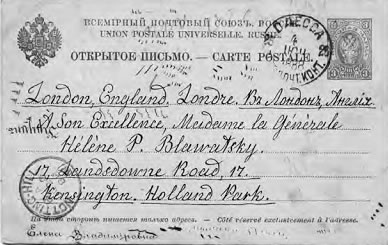 ВСЕМІРНЫЙ ПОЧТОВЫЙ СОЮЗЪ.
UNION POSTALE UNIVERSELLE. RUSSIE
ОТКРЫТОЕ ПИСЬМО. — CARTE POSTALE.
ОДЕССА
London, England, Londre. Въ Лондонъ, Англія
A Son Excellence, Madame la Générale
Hélène P. Blawatsky.
17. Landsdowne Road, 17.
Kensington. Holland Park.
На этой сторонѣ пишется только адресъ. — Côté réservé exclusivement à l'adresse.
Елена